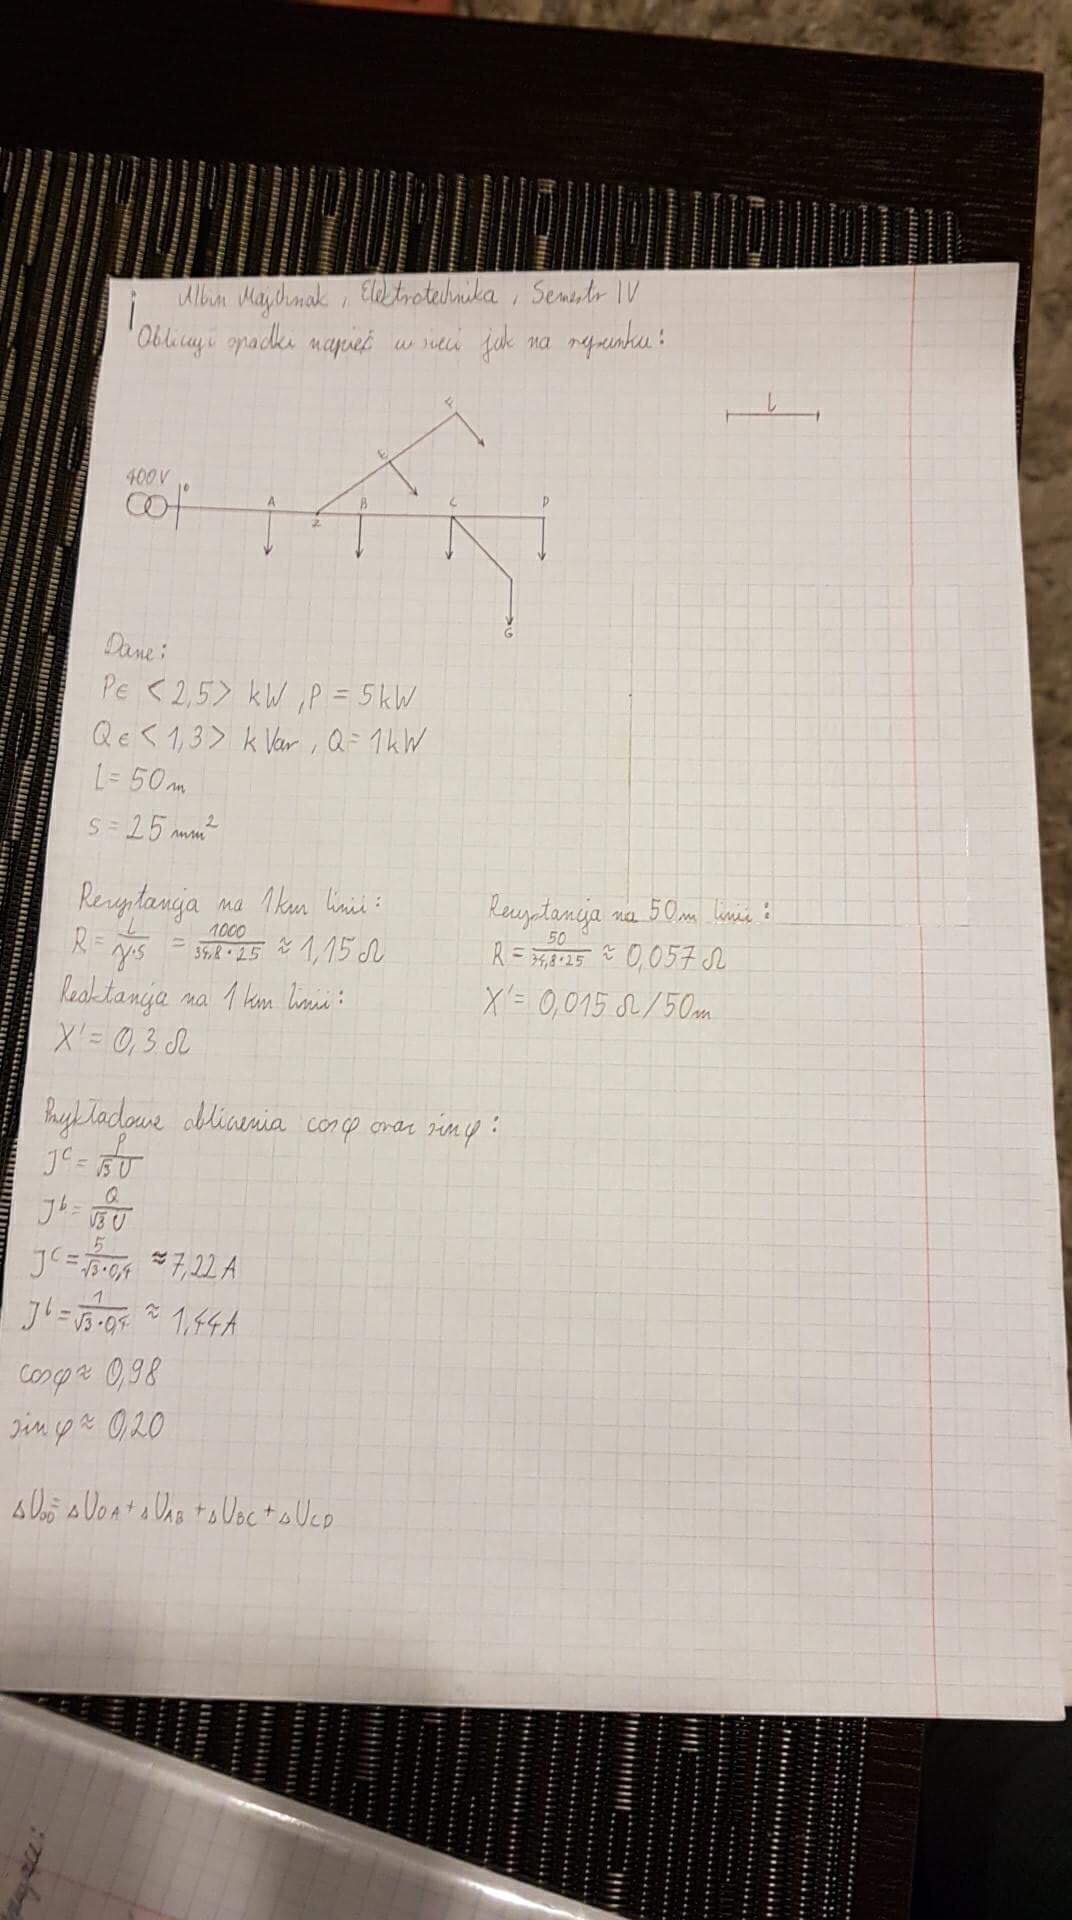 Albin Majchrnak, Elektrotechnika, Semestr IV
Obliczyć spadki napięć w sieci jak na rysunku:
l
F
E
400V
0
A
Z
B
C
D
G
Dane:
P∈ <2,5> kW, P = 5kW
Q∈ <1,3> kVar, Q = 1kW
l= 50m
s = 25 mm²
Rezystancja na 1km linii:
R = l/γ·s = 1000/34,8·25 ≈ 1,15 Ω
Reaktancja na 1 km linii:
X' = 0,3 Ω
Rezystancja na 50m linii:
R = 50/34,8·25 ≈ 0,057 Ω
X' = 0,015 Ω/50m
Przykładowe obliczenia cosφ oraz sinφ:
Jᶜ = P/√3 U
Jᵇ = Q/√3 U
Jᶜ = 5/√3·0,4 ≈ 7,22 A
Jᵇ = 1/√3·0,4 ≈ 1,44A
cosφ ≈ 0,98
sin φ ≈ 0,20
ΔU0D = ΔU0A + ΔUAB + ΔUBC + ΔUCD